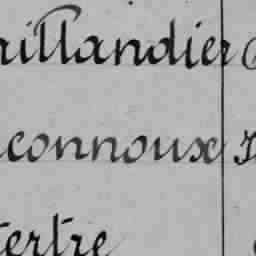 aillandier
connoux
tertre